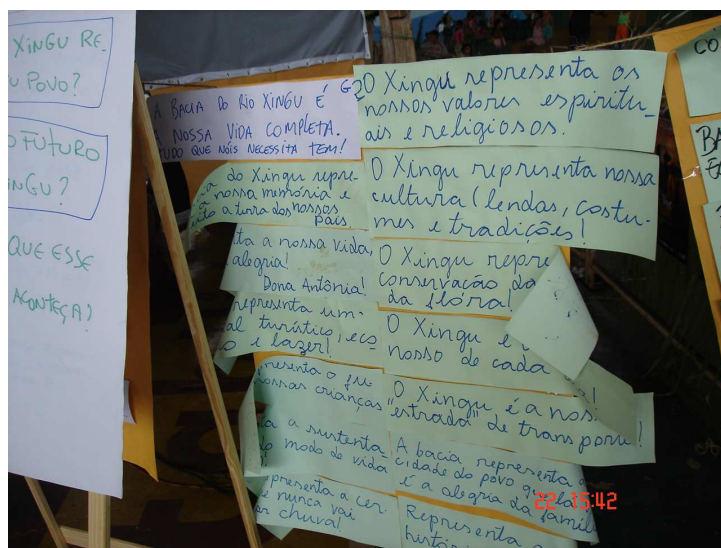 XINGU RE
POVO?
FUTURO
INGU?
QUE ESSE
ACONTEÇA?
A BACIA DO RIO XINGU É
NOSSA VIDA COMPLETA.
TUDO QUE NÓIS NECESSITA TEM!
do Xingu repre-
nossa memória e
a terra dos nossos
pais.
ta a nossa vida,
alegria!
Dona Antônia!
representa um
al turístico, eco
o e lazer!
presenta o fu-
nossas crianças
ta a sustenta-
modo de vida
presenta a cer-
e nunca vai
er chuva!
O Xingu representa os
nossos valores espiritu-
ais e religiosos.
O Xingu representa nossa
cultura (lendas, costu-
mes e tradições!
O Xingu repre
conservação da
da flóra!
O Xingu é
nosso de cada
O Xingu é a nos
"estrada" de transporte!
A bacia representa a
cidade do povo que
é a alegria da famíl
Representa a
histór
CO
BA
22 15:42